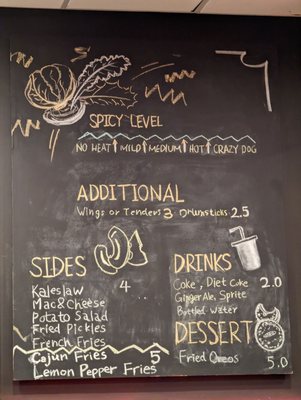 SPICY LEVEL
NO HEAT MILD MEDIUM HOT CRAZY DOG
ADDITIONAL
Wings or Tenders 3 Drumsticks 2.5
SIDES 4
Kaleslaw
Mac&Cheese
Potato Salad
Fried Pickles
French Fries
Cajun Fries 5
Lemon Pepper Fries
DRINKS
Coke, Diet Coke 2.0
Ginger Ale, Sprite
Bottled water
DESSERT
Fried Oreos 5.0